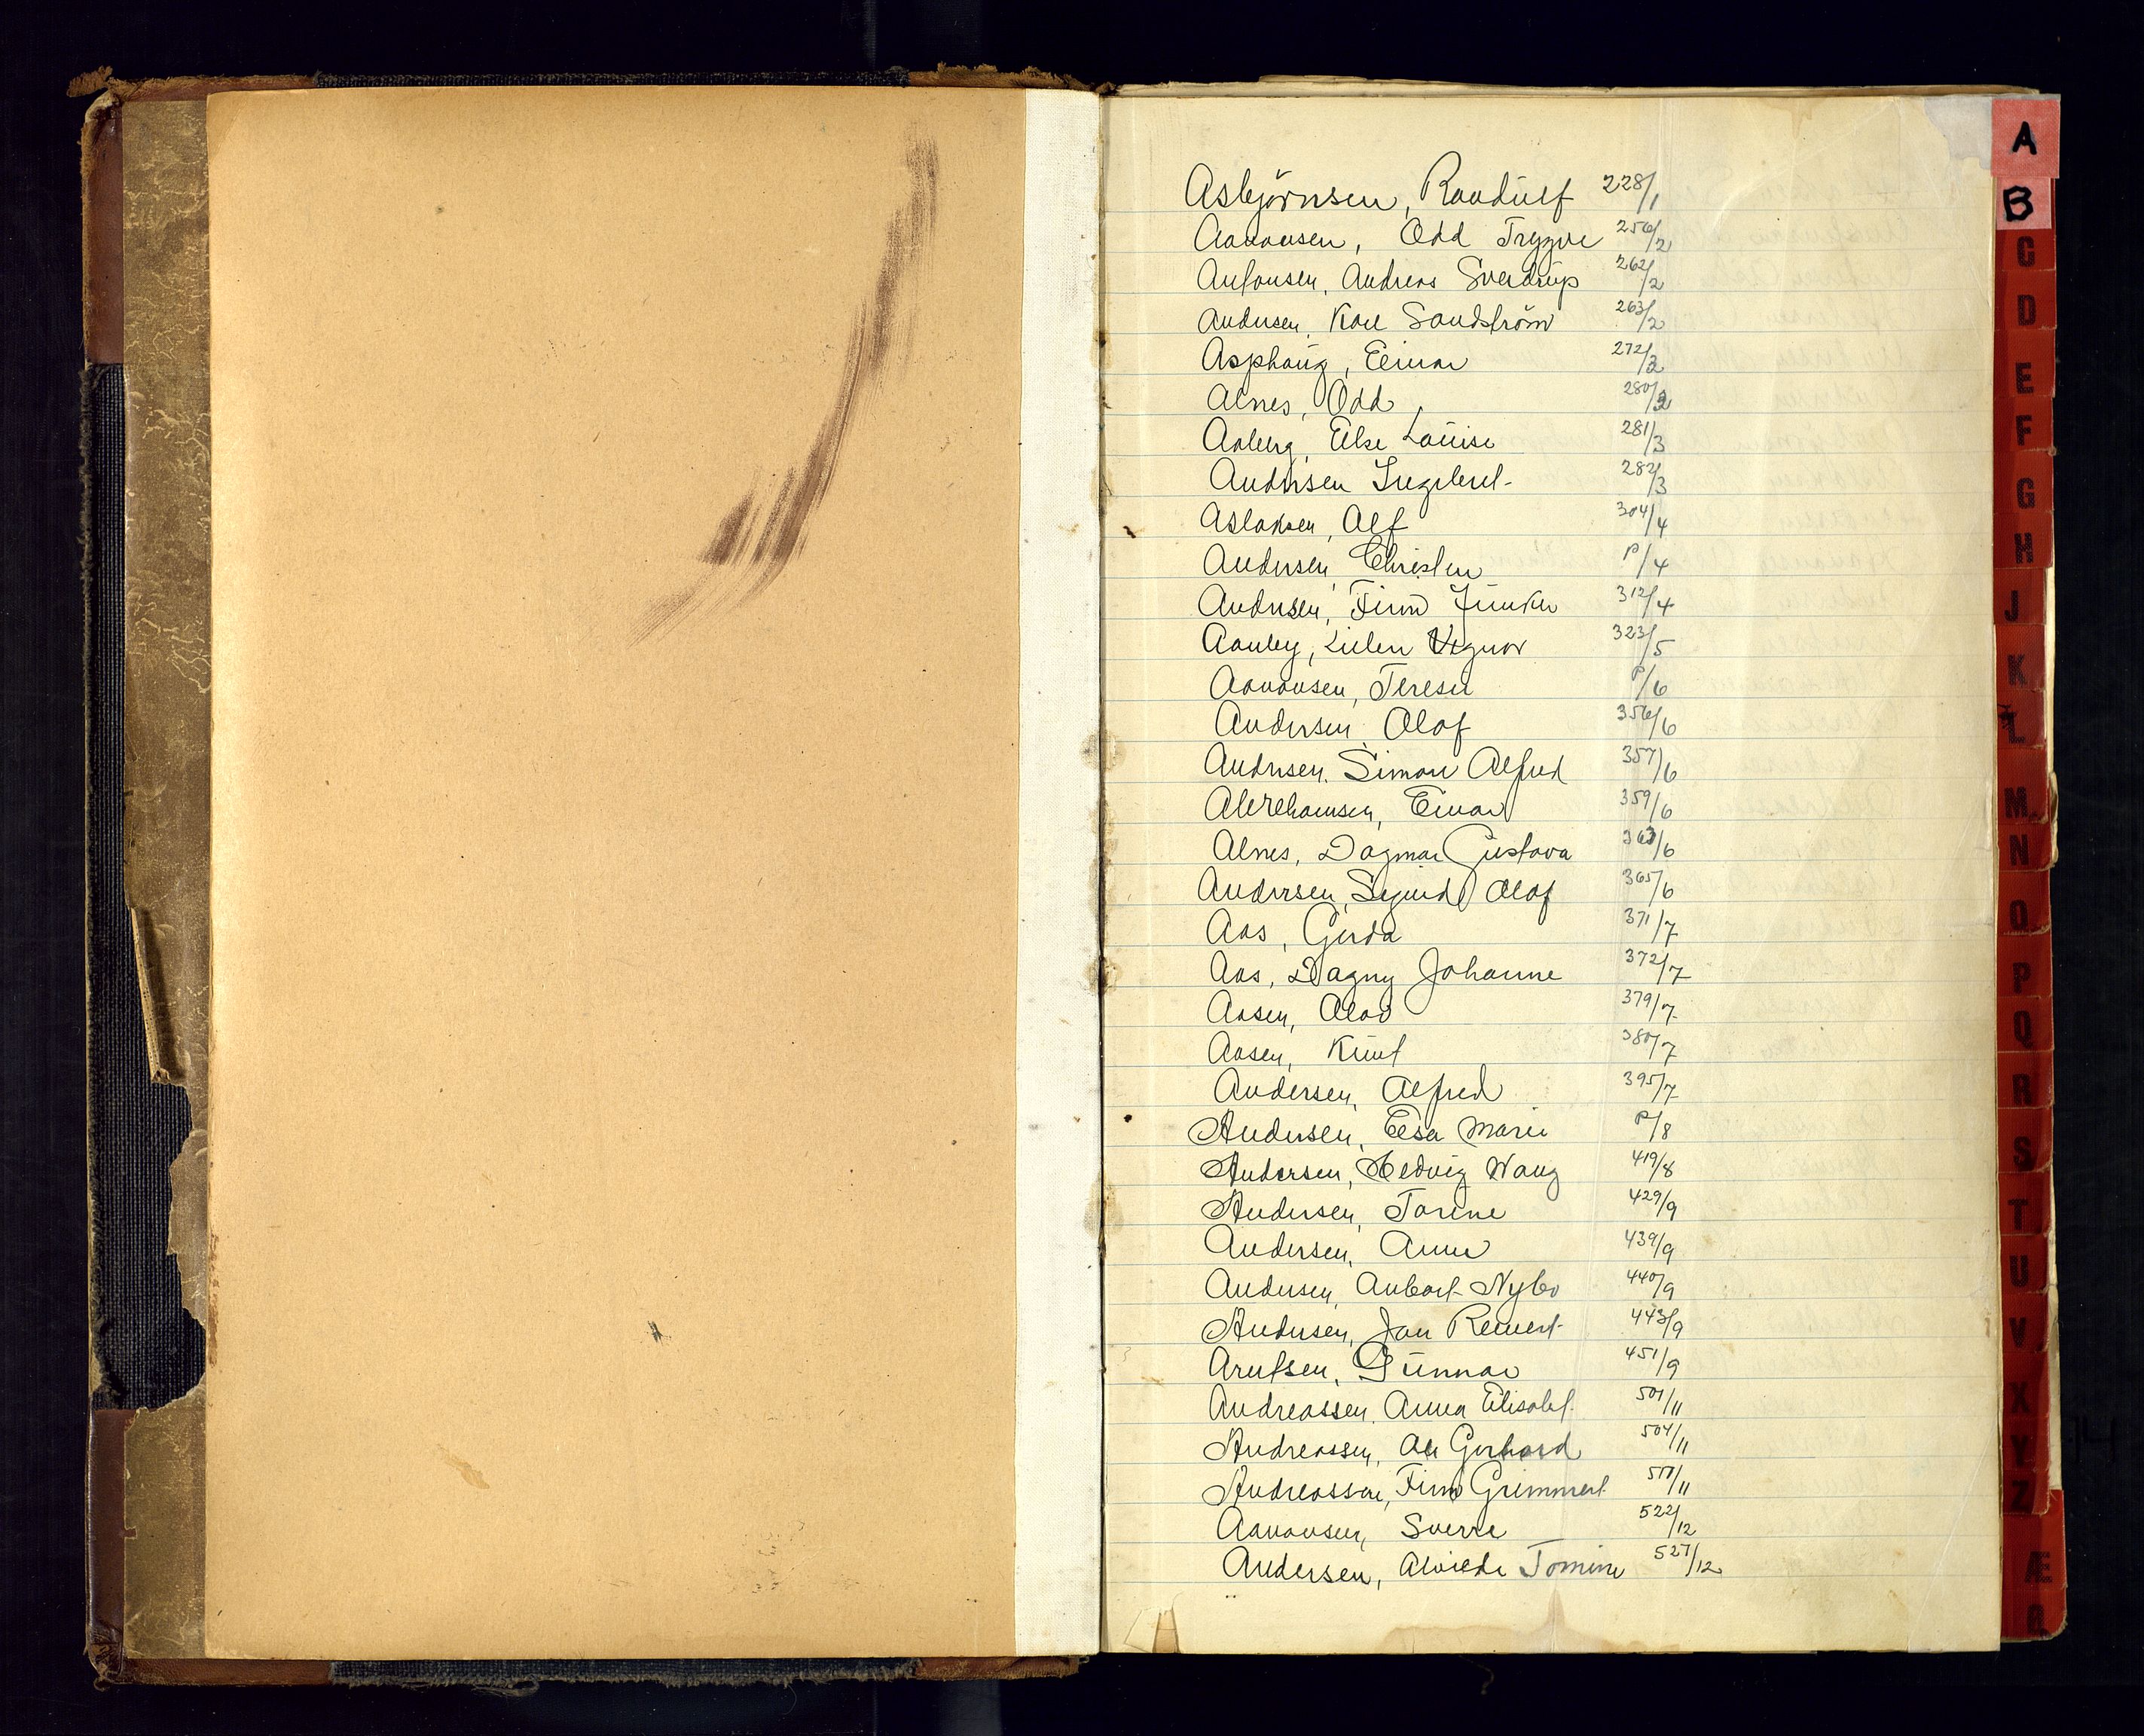 Asbjörnsen, Randulf 228/1
Aanonsen, Odd Trygve 256/2
Antonsen, Andreas Sverdrup 262/2
Andersen, Kare Sandström 263/2
Asphaug, Einar 272/3
Alnes, Odd 280/3
Aaberg, Else Louise 281/3
Andersen Ingebret 282/3
Aslaksen, Alf 304/4
Andersen, Christen P/4
Andersen, Finn Junker 312/4
Aanby, 323/5
Aanonsen, Terese P/6
Andersen, Olaf 356/6
Andersen, Simon Alfred 357/6
Abrahamsen, Einar 359/6
Alnes, Dagmar Gustava 363/6
Andersen, Sigurd Olaf 365/6
Aas, Gerda 371/7
Aas, Dagny Johanne 372/7
Aasen, Olav 379/7
Aasen, Knut 380/7
Andersen, Alfred 395/7
Andersen, Elsa Marie P/8
Andersen, Hedvig Wang 419/8
Andersen, Torine 429/9
Andersen, Anne 439/9
Andersen, Anbart Nybo 440/9
Andersen, Jan Reinert 443/9
Arntsen, Gunnar 451/9
Andreassen, Anna Elisabet 501/11
Andreassen, Ole Gerhard 504/11
Andreassen, Finn Grimmert 511/11
Aanonsen, Sverre 522/12
Andersen, Alvilde Tomine 527/12
A
B
C
D
E
F
G
H
J
K
L
M
N
O
P
Q
R
S
T
U
V
X
Y
Z
Æ